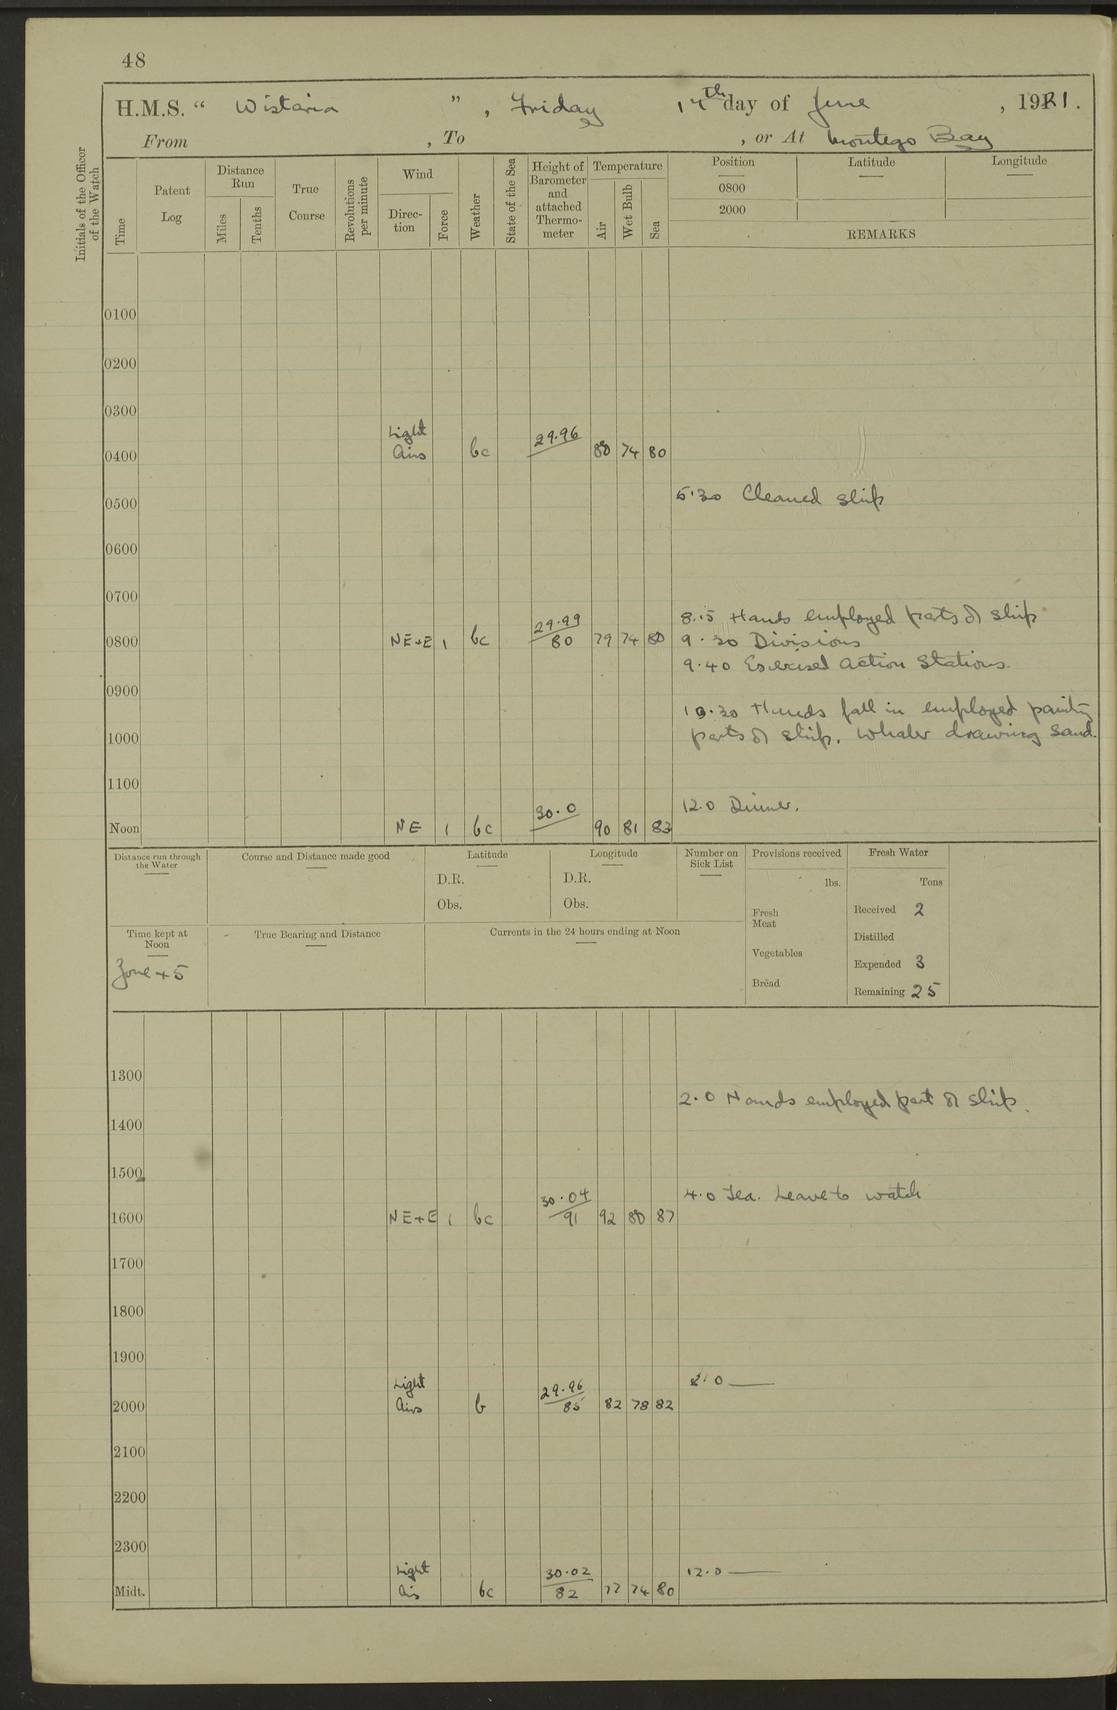 48
H.M.S. " Wistaria " , Friday 17th day of June , 1921.
From , To , or At Montego Bay
Initials of the Officer of the Watch
Time
Patent Log
Distance Run
Miles
Tenths
True Course
Revolutions per minute
Wind
Direc-tion
Force
Weather
State of the Sea
Height of Barometer and attached Thermo-meter
Temperature
Air
Wet Bulb
Sea
Position
Latitude
Longitude
0800
2000
REMARKS
0100
0200
0300
Light 29.96
0400 Airs bc 80 74 80
0500 5.30 Cleaned ship
0600
0700
8.15 Hands employed parts of ship
29.99
0800 NE+E 1 bc 80 79 74 80 9.30 Divisions
9.40 Exercised Action Stations.
0900
10.30 Hands fall in employed painting
1000 parts of ship. Whaler drawing sand.
1100
30.0 12.0 Dinner.
Noon NE 1 bc 90 81 83
Distance run through the Water
Course and Distance made good
Latitude
D.R.
Obs.
Longitude
D.R.
Obs.
Number on Sick List
Provisions received
lbs.
Fresh Meat
Vegetables
Bread
Fresh Water
Tons
Received 2
Distilled
Expended 3
Remaining 25
Time kept at Noon
Zone + 5
True Bearing and Distance
Currents in the 24 hours ending at Noon
1300
2.0 Hands employed part of ship.
1400
1500
30.04 4.0 Tea. Leave to watch
1600 NE+E 1 bc 91 92 80 87
1700
1800
1900
Light 29.96 8.0
2000 Airs b 85 82 78 82
2100
2200
2300
Light 30.02 12.0
Midt. Air bc 82 77 74 80